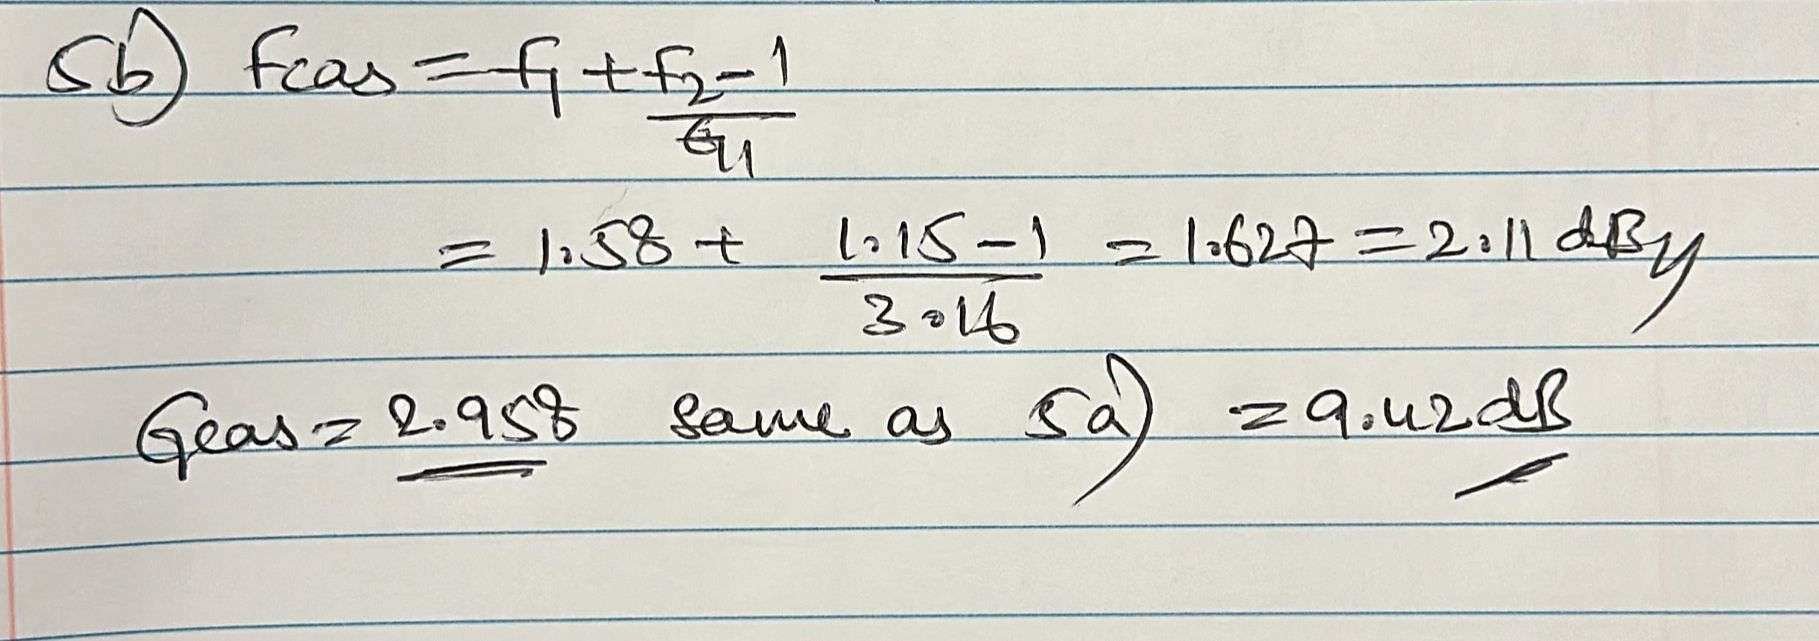 5b) Fcas = F1 + F2-1
G1
= 1.58 + 1.15-1 = 1.627 = 2.11 dB
3.16
Gcas = 2.958 same as 5a) = 9.42 dB